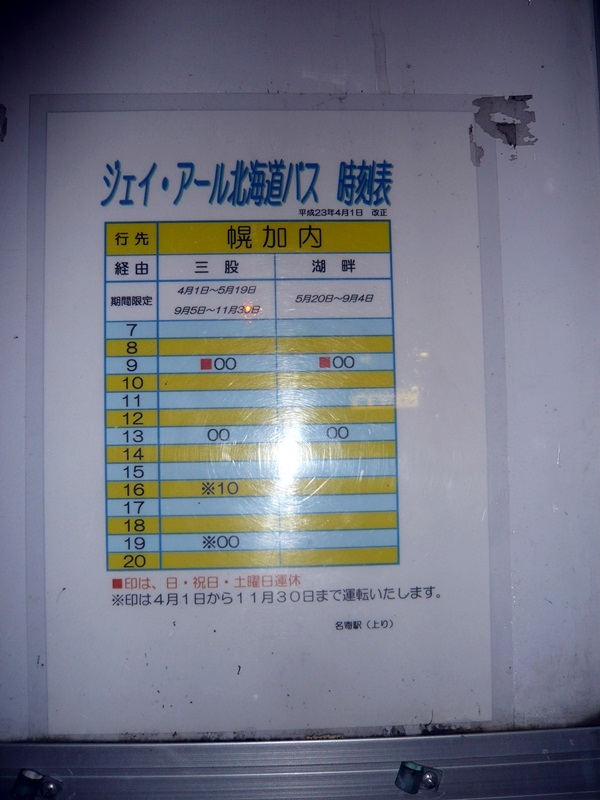 ジェイ・アール北海道バス 時刻表
平成23年4月1日 改正
行先 幌加内
経由 三股 湖畔
期間限定 4月1日~5月19日 9月5日~11月30日 5月20日~9月4日
7
8
9 ■00 ■00
10
11
12
13 00 00
14
15
16 ※10
17
18
19 ※00
20
■印は、日・祝日・土曜日運休
※印は4月1日から11月30日まで運転いたします。
名寄駅(上り)